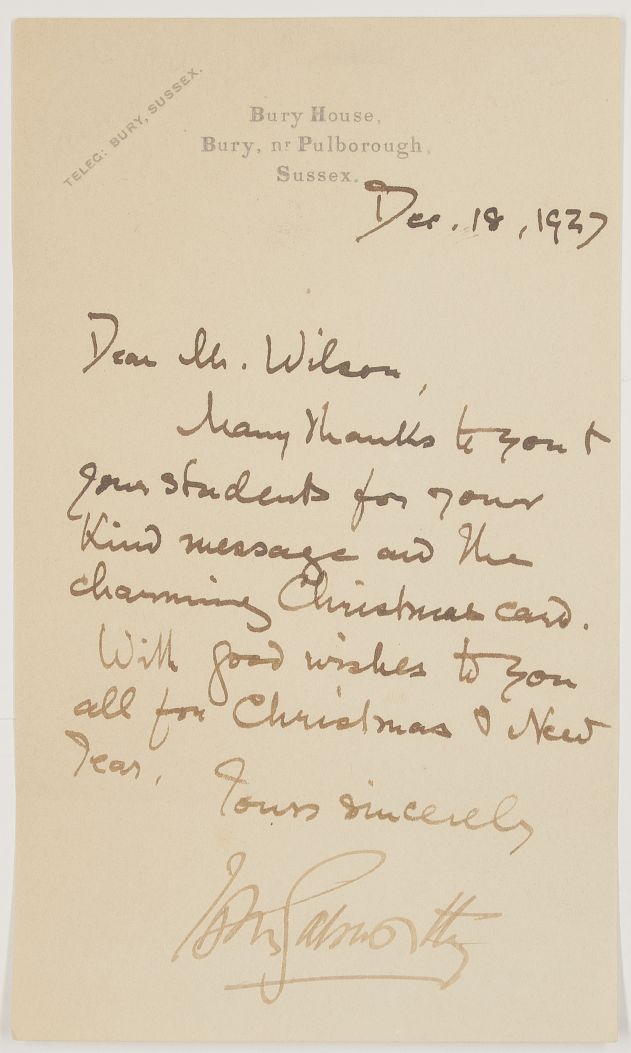 TELEG: BURY, SUSSEX.
Bury House,
Bury, nr Pulborough,
Sussex.
Dec. 18, 1927
Dear Mr. Wilson,
Many thanks to you &
your students for your
kind message and the
charming Christmas card.
With good wishes to you
all for Christmas & New
Year,
Yours sincerely
John Galsworthy